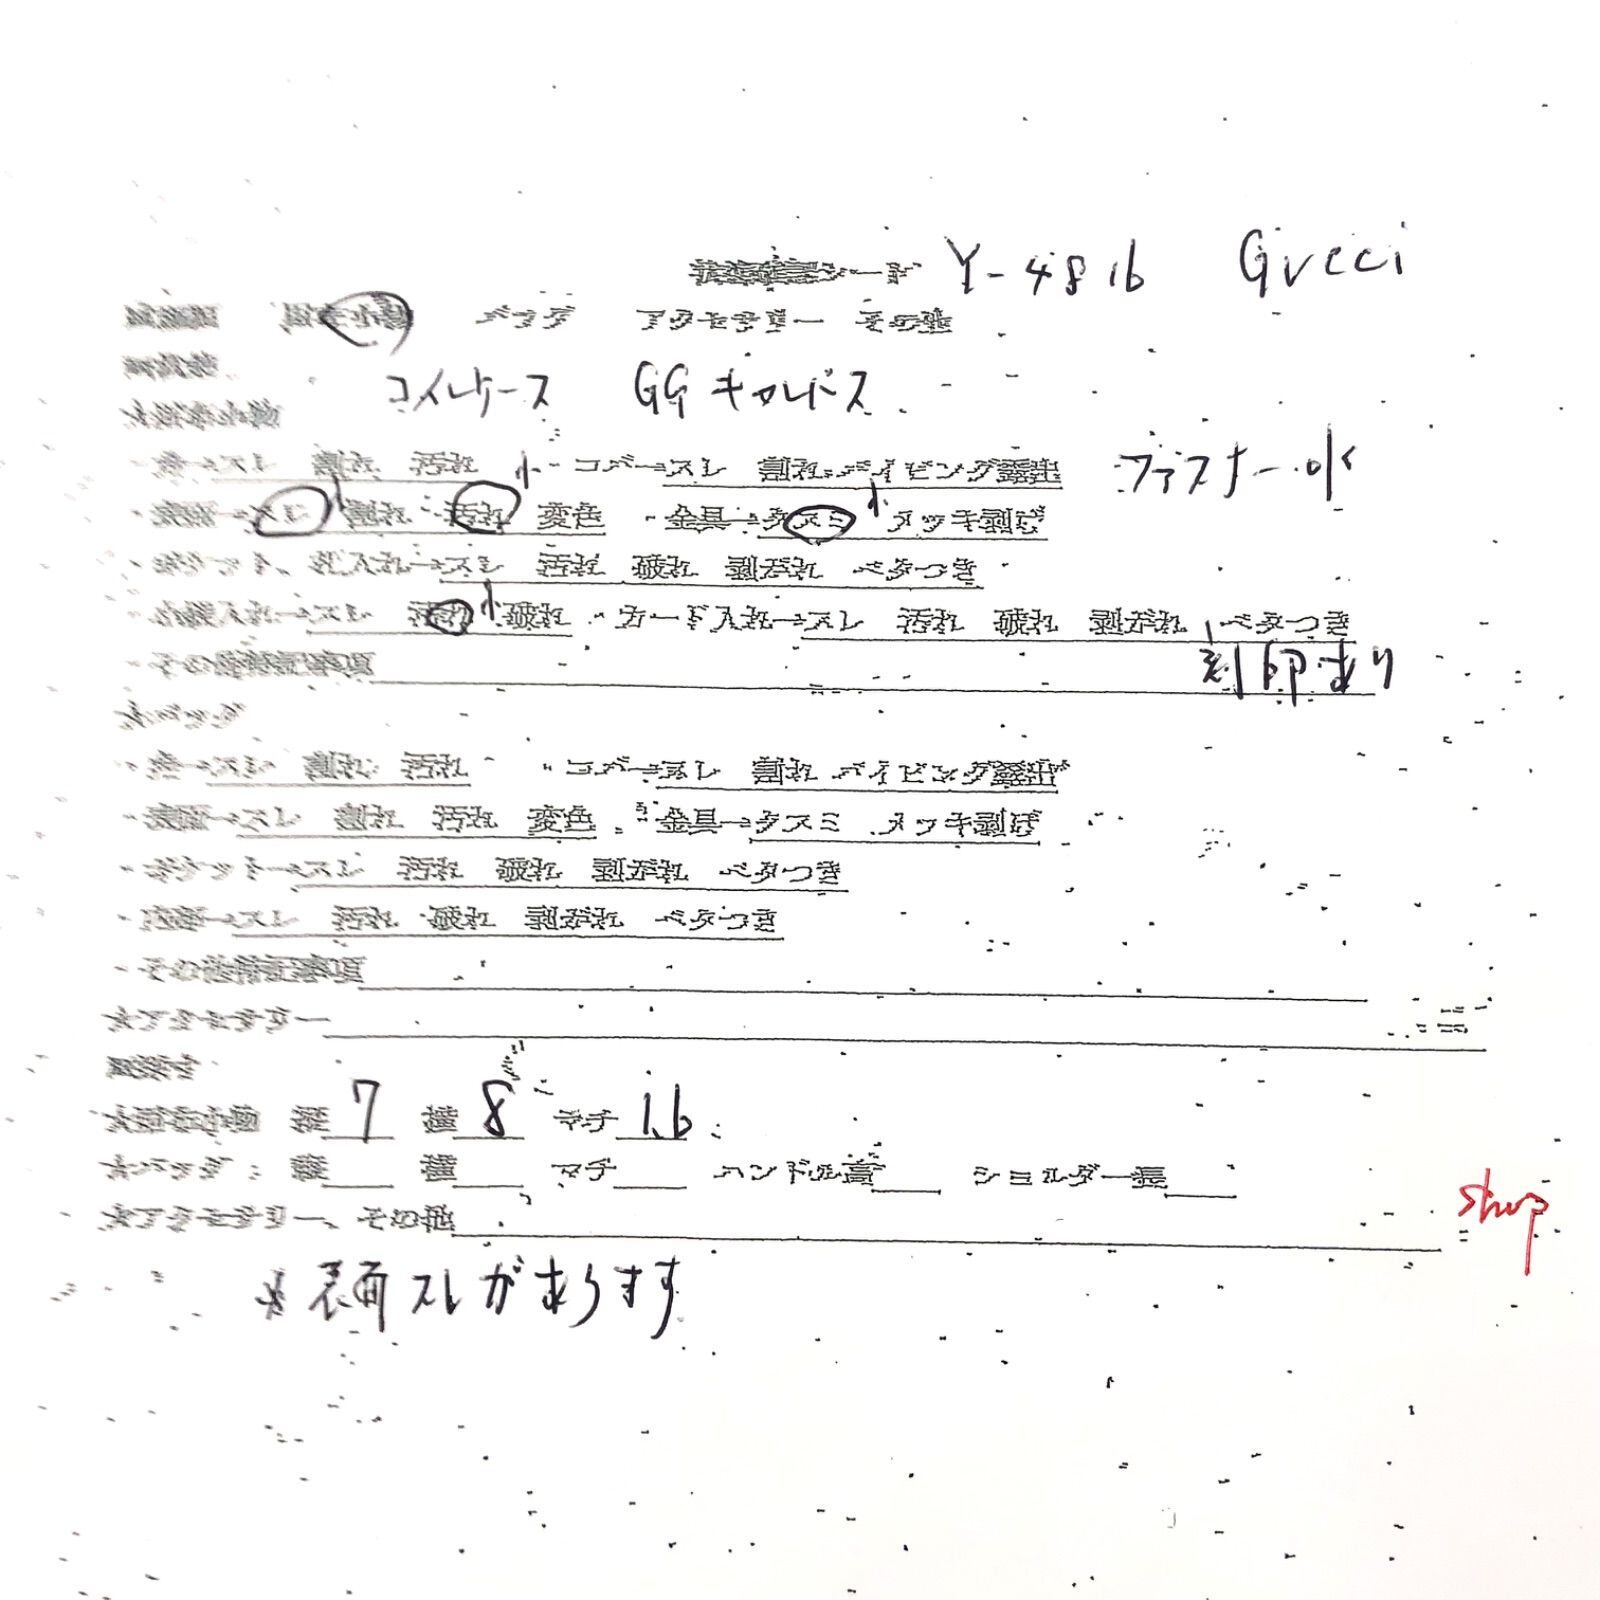 シート Y-4816 Gucci
小物 バッグ アクセサリー その他
コインケース GGキャンバス
スレ 割れ 汚れ ・コバ→スレ 割れ パイピング露出 ファスナーOK
スレ 小 割れ 汚れ 小 変色 ・金具→クスミ 小 メッキ剥げ
スレ 汚れ 破れ 剥がれ ベタつき
スレ 汚れ 小 破れ ・カード入れ→スレ 汚れ 破れ 剥がれ ベタつき
・その他特記事項 刻印あり
バッグ
スレ 割れ 汚れ ・コバ→スレ 割れ パイピング露出
・表面→スレ 割れ 汚れ 変色 ・金具→クスミ メッキ剥げ
・ポケット→スレ 汚れ 破れ 剥がれ ベタつき
・内部→スレ 汚れ 破れ 剥がれ ベタつき
・その他特記事項
アクセサリー
縦 7 横 8 マチ 1.6
バッグ : 縦 横 マチ ハンドル高 ショルダー長
アクセサリー、その他
shop
※表面スレがあります